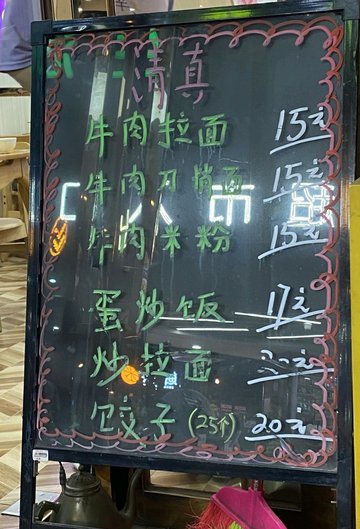 清真
牛肉拉面 15元
牛肉刀削面 15元
牛肉米粉 15元
蛋炒饭 17元
炒拉面
饺子 (25个) 20元